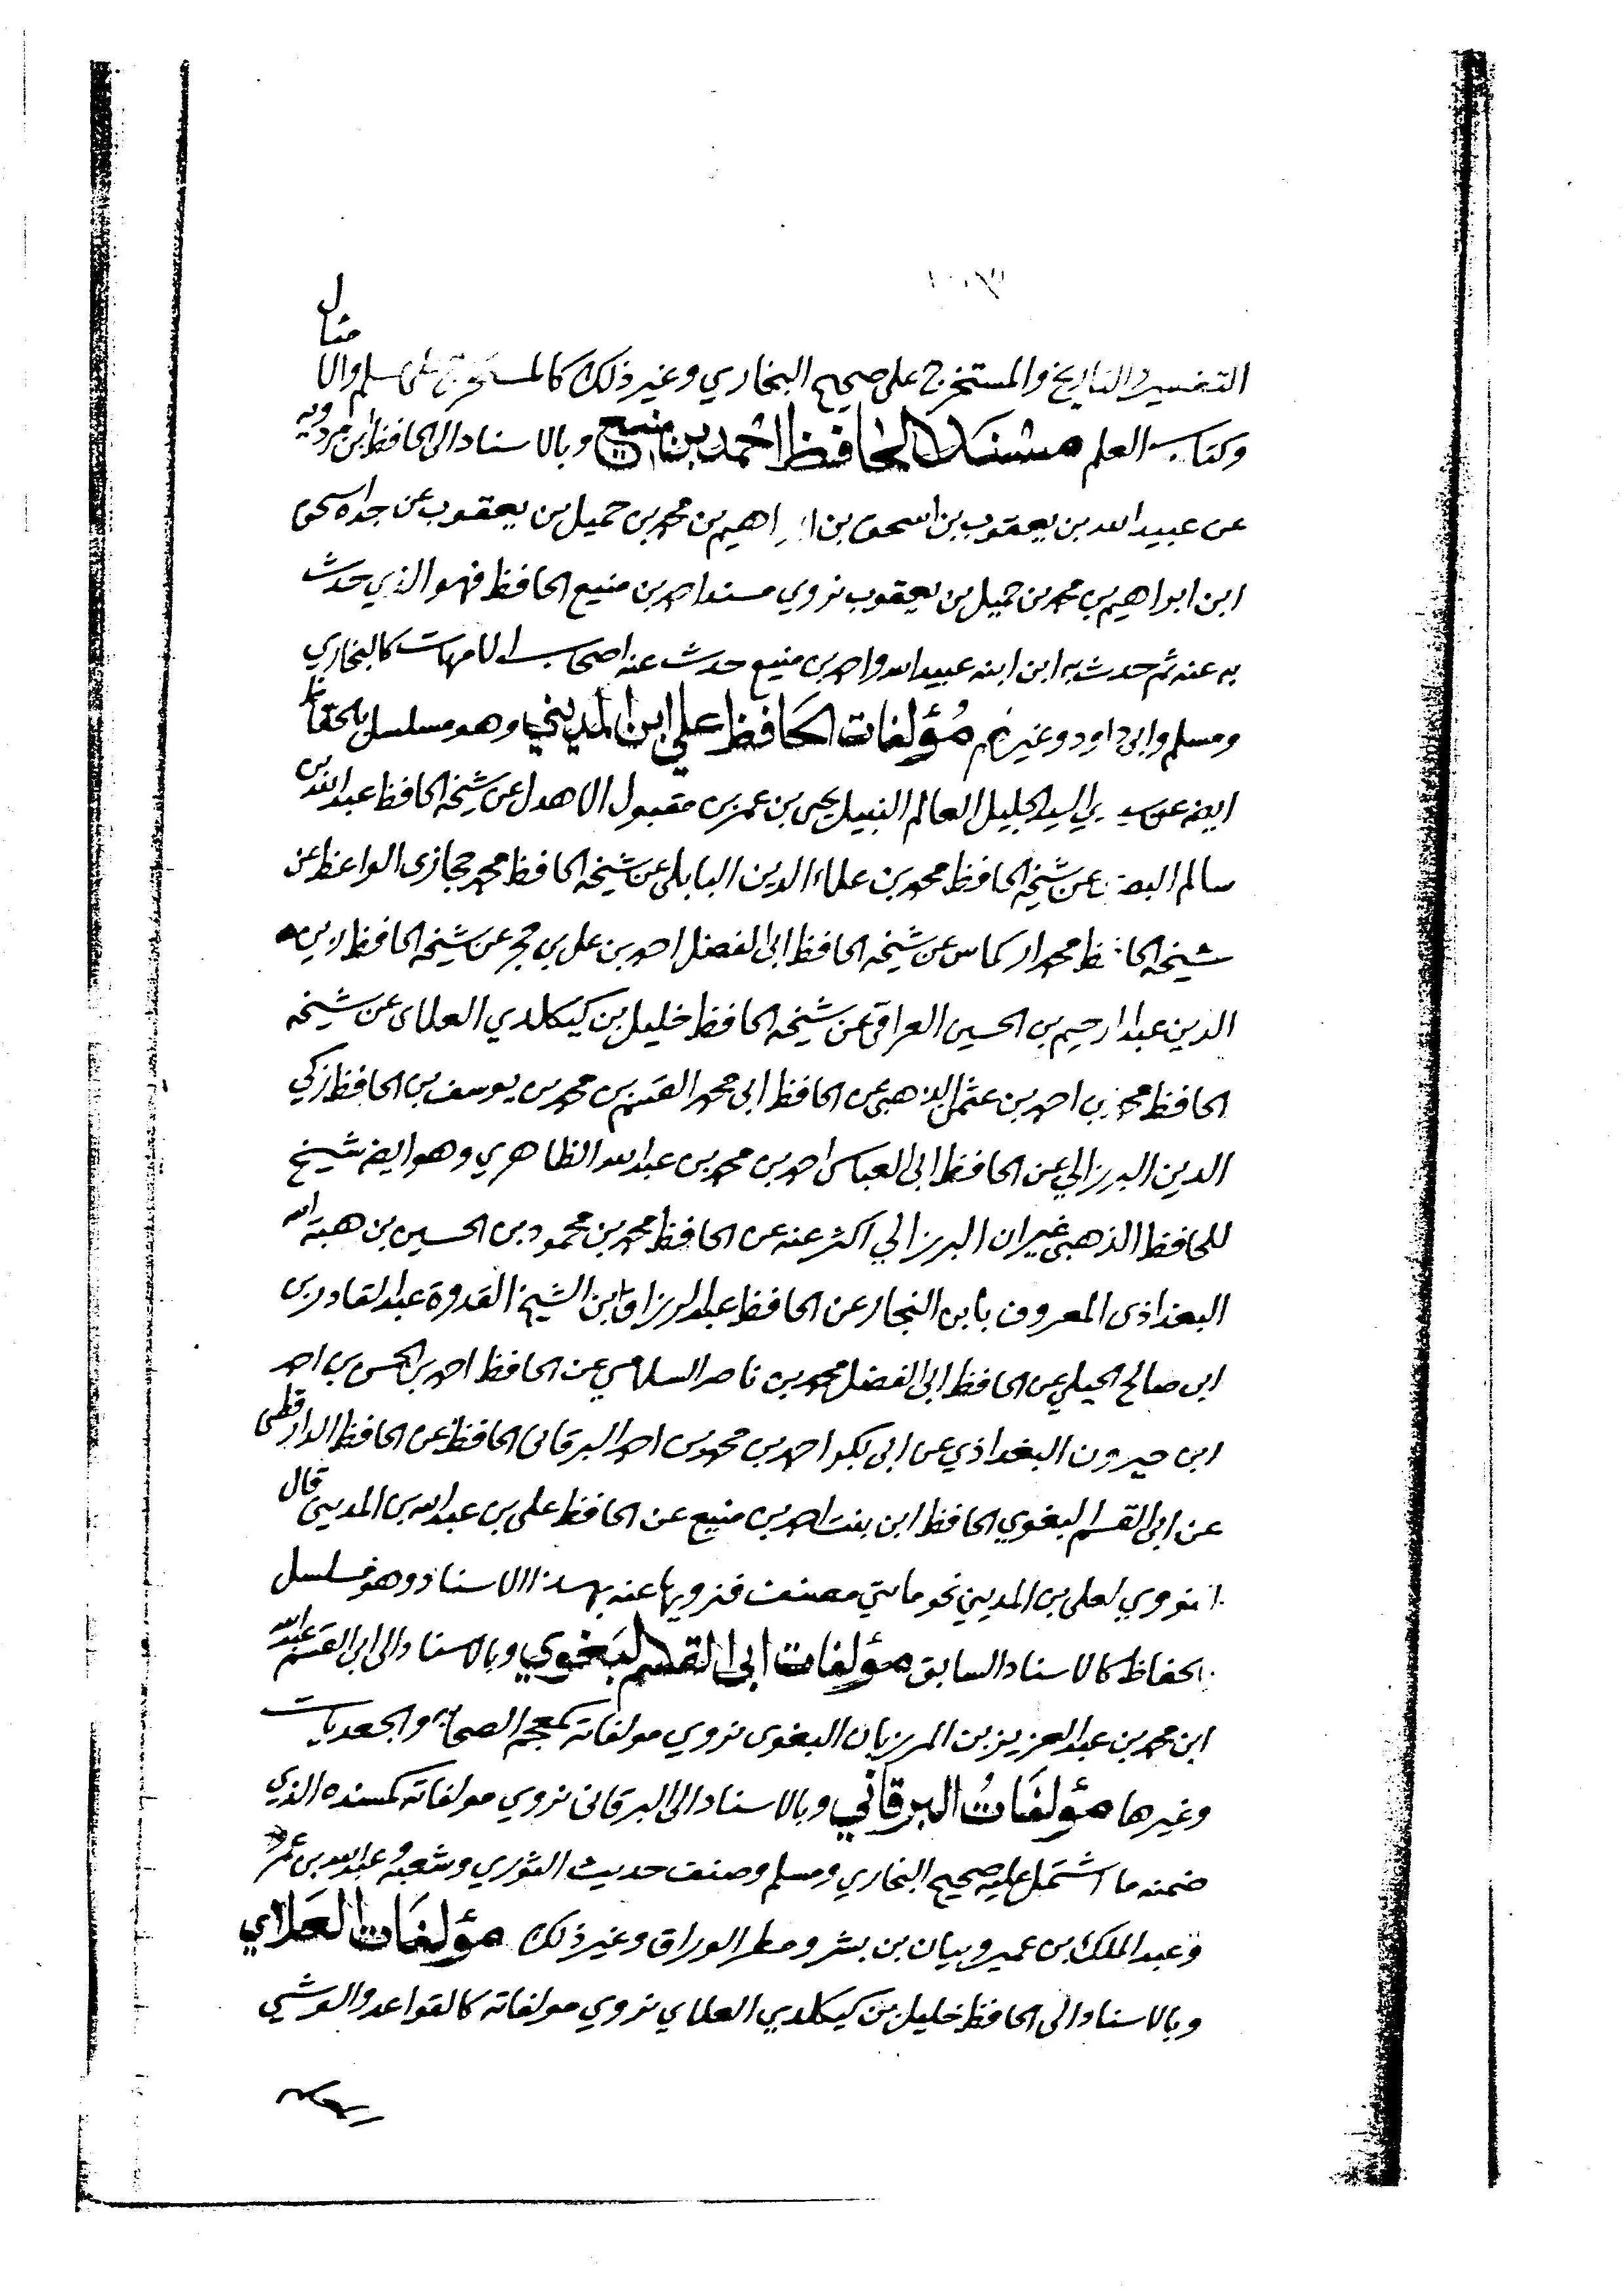 التفسير والتاريخ والمستخرج على صحيح البخاري وغير ذلك كالمستخرج على مسلم والامثال
وكتاب العلم مسند الحافظ احمد بن منيع وبالاسناد الى الحافظ ابن مردويه
عن عبيد الله بن يعقوب بن اسحق بن ابراهيم بن محمد بن جميل بن يعقوب عن جده اسحق
ابن ابراهيم بن محمد بن جميل بن يعقوب نروي مسند احمد بن منيع الحافظ فهو الذي حدث
به عنه ثم حدث به ابن ابنه عبيد الله واحمد بن منيع حدث عنه اصحاب الامهات كالبخاري
ومسلم وابي داود وغيرهم مُؤلفات الحَافظ علي ابن المديني وهو مسلسل بالحفاظ
ايضه عن سيدي السيد الجليل العالم النبيل يحيى بن عمر بن مقبول الاهدل عن شيخه الحافظ عبد الله بن
سالم البصري عن شيخه الحافظ محمد بن علاء الدين البابلي عن شيخه الحافظ محمد حجازى الواعظ عن
شيخه الحافظ محمد اركماس عن شيخه الحافظ ابى الفضل احمد بن على بن حجر عن شيخه الحافظ زين
الدين عبد الرحيم بن الحسين العراقي عن شيخه الحافظ خليل بن كيكلدي العلاى عن شيخه
الحافظ محمد بن احمد بن عثمان الذهبي عن الحافظ ابى محمد القسم بن محمد بن يوسف بن الحافظ زكي
الدين البرزالي عن الحافظ ابى العباس احمد بن محمد بن عبد الله الظاهري وهو ايضه شيخ
للحافظ الذهبي غير ان البرزالي اكثر عنه عن الحافظ محمد بن محمود بن الحسين بن هبة الله
البغداذى المعروف بابن النجار عن الحافظ عبد الرزاق ابن الشيخ القدوة عبد القادر بن
ابى صالح الجيلي عن الحافظ ابى الفضل محمد بن ناصر السلامي عن الحافظ احمد بن الحسن بن احمد
ابن خيرون البغداذي عن ابى بكر احمد بن محمد بن احمد البرقانى الحافظ عن الحافظ الدارقطني
عن ابى القسم البغوي الحافظ ابن بنت احمد بن منيع عن الحافظ على بن عبد الله بن المديني قال
النووي لعلى بن المديني نحو مائتي مصنف فنرويها عنه بهذا الاسناد وهو مسلسل
بالحفاظ كالاسناد السابق مؤلفات ابى القسم البَغوي وبالاسناد الى ابى القسم عبد الله
ابن محمد بن عبد العزيز بن المرزبان البغوى نروي مولفاته كمعجم الصحابه والجعديات
وغيرها مؤلفَاتُ البرقاني وبالاسناد الى البرقانى نروي مولفاته كمسنده الذي
ضمنه ما اشتمل عليه صحيح البخاري ومسلم وصنف حديث الثوري وشعبه وعبد الله بن عمر
وعبد الملك بن عمير وبيان بن بشر ومطر الوراق وغير ذلك مؤلفَات العَلاي
وبالاسناد الى الحافظ خليل بن كيكلدي العلاي نروي مولفاته كالقواعد والوشي